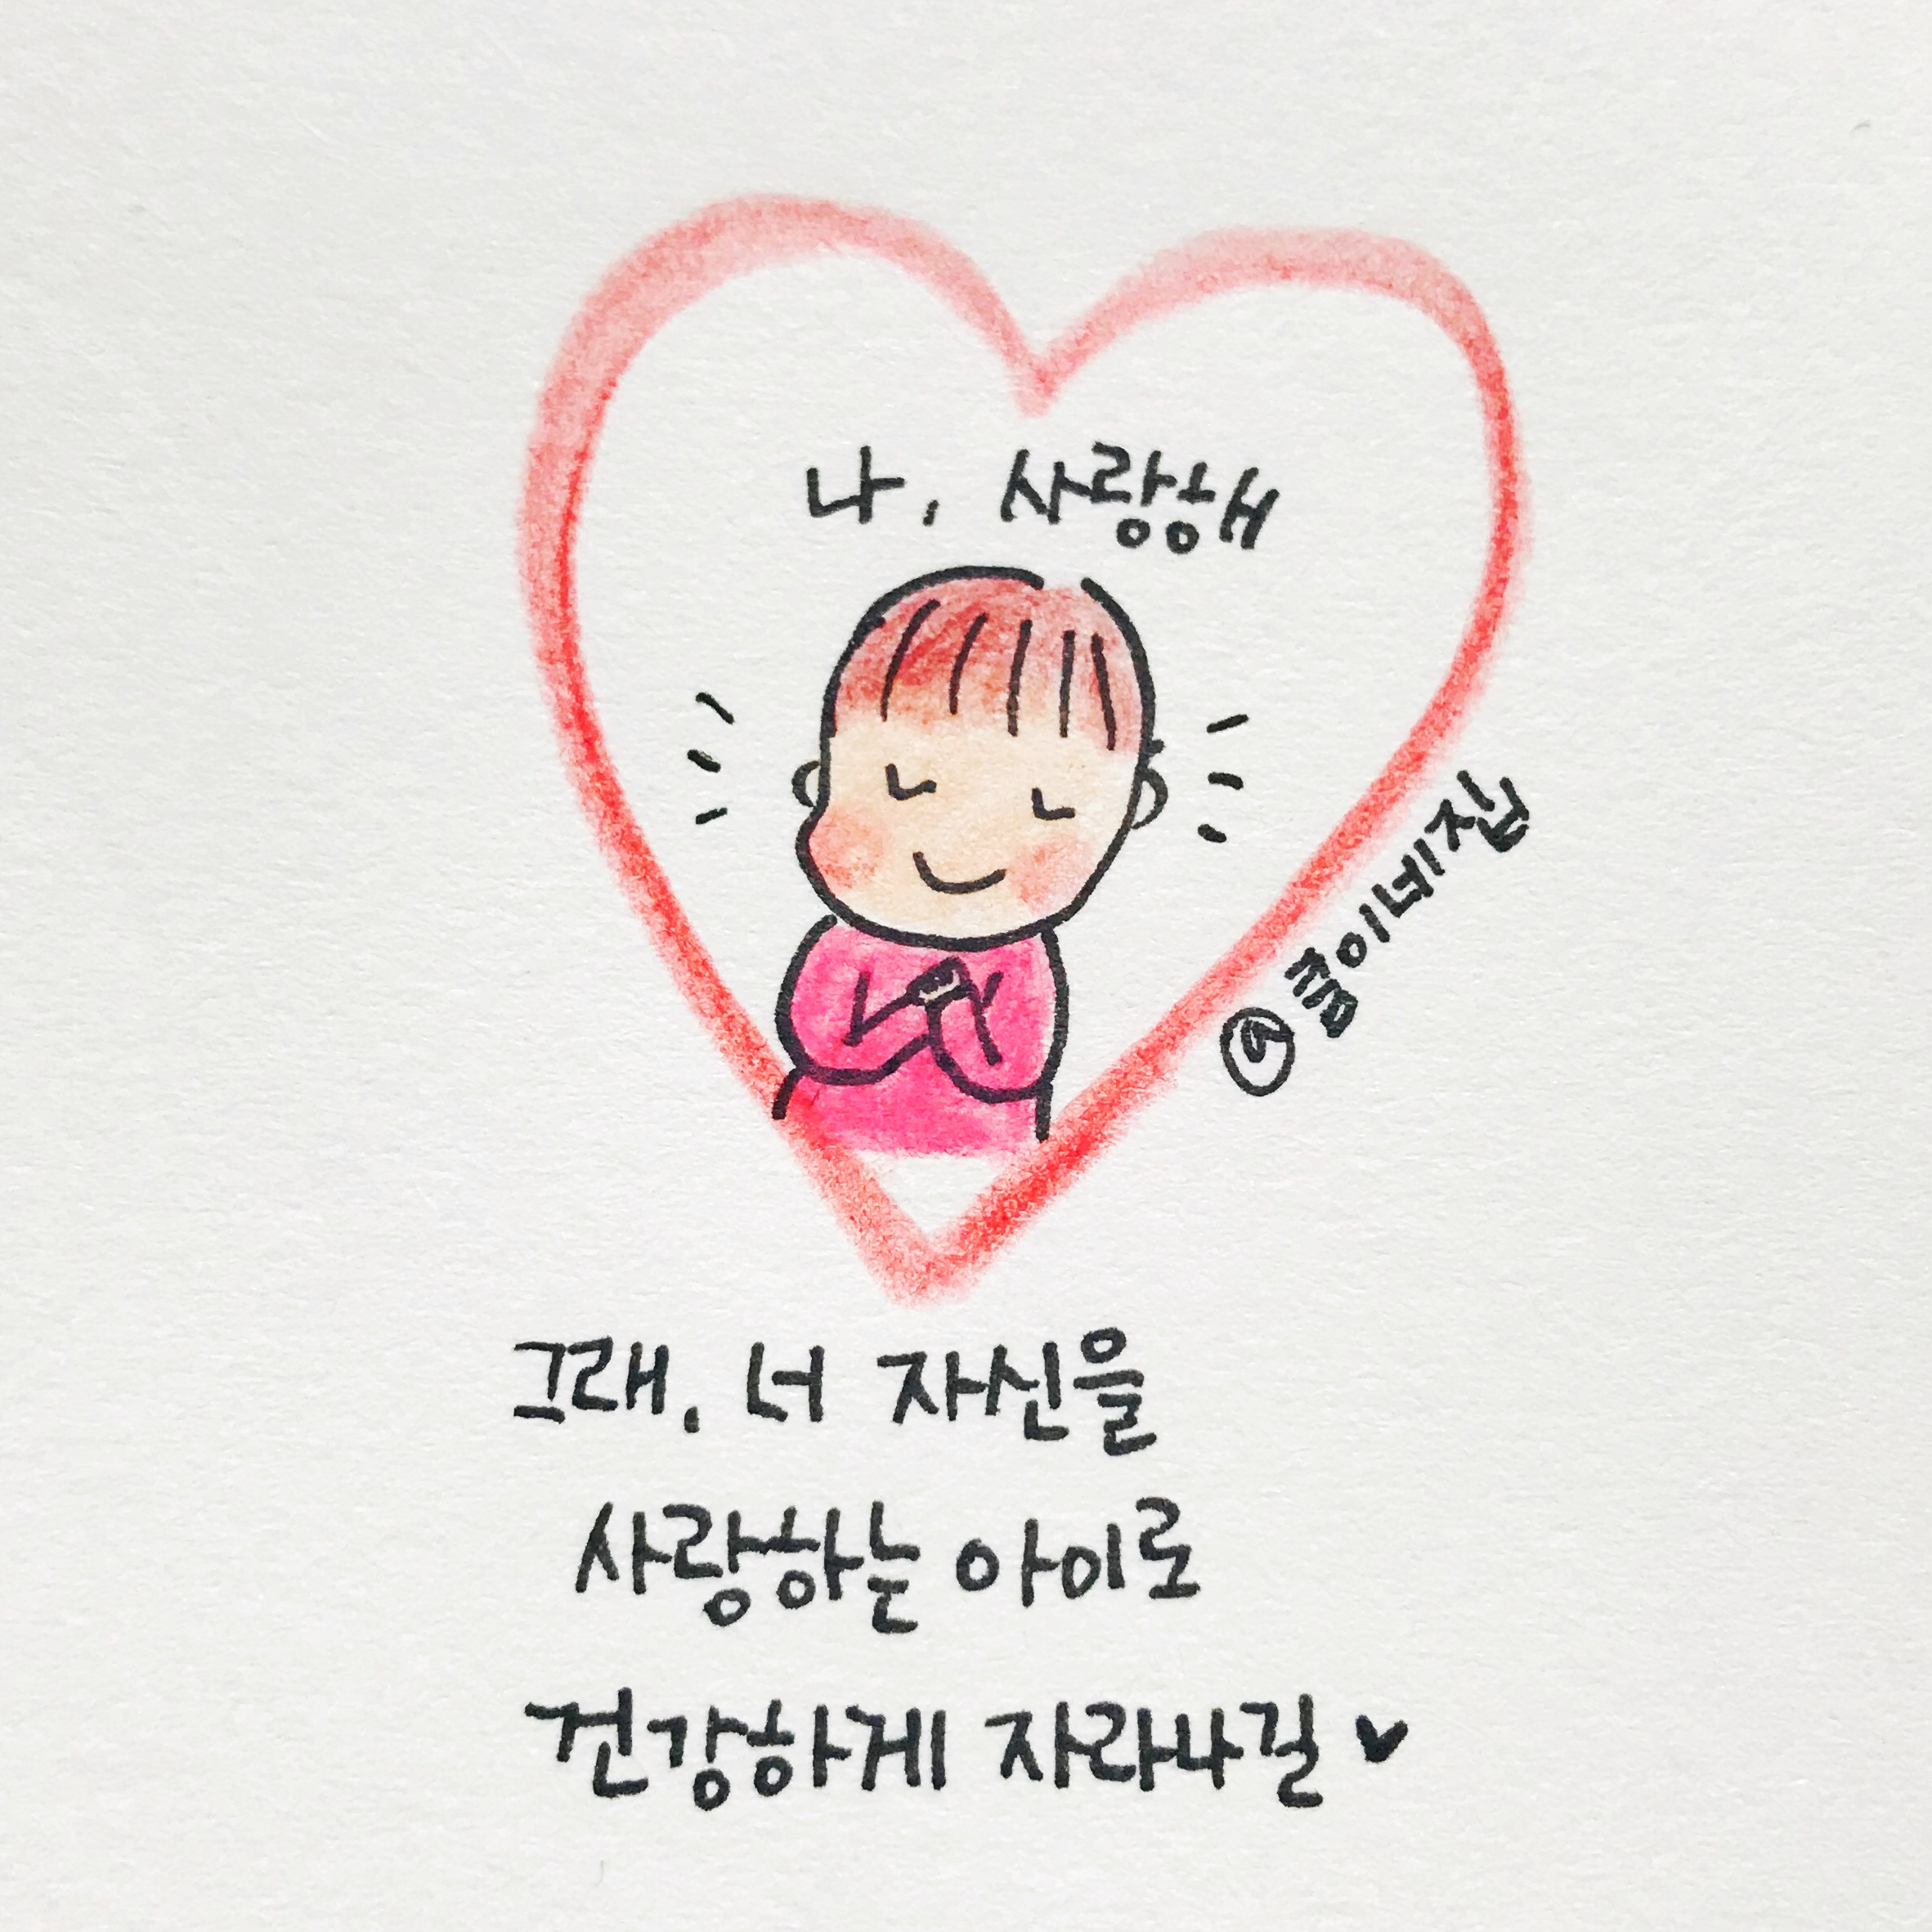 나, 사랑해
@콩이네집
그래, 너 자신을
사랑하는 아이로
건강하게 자라나길